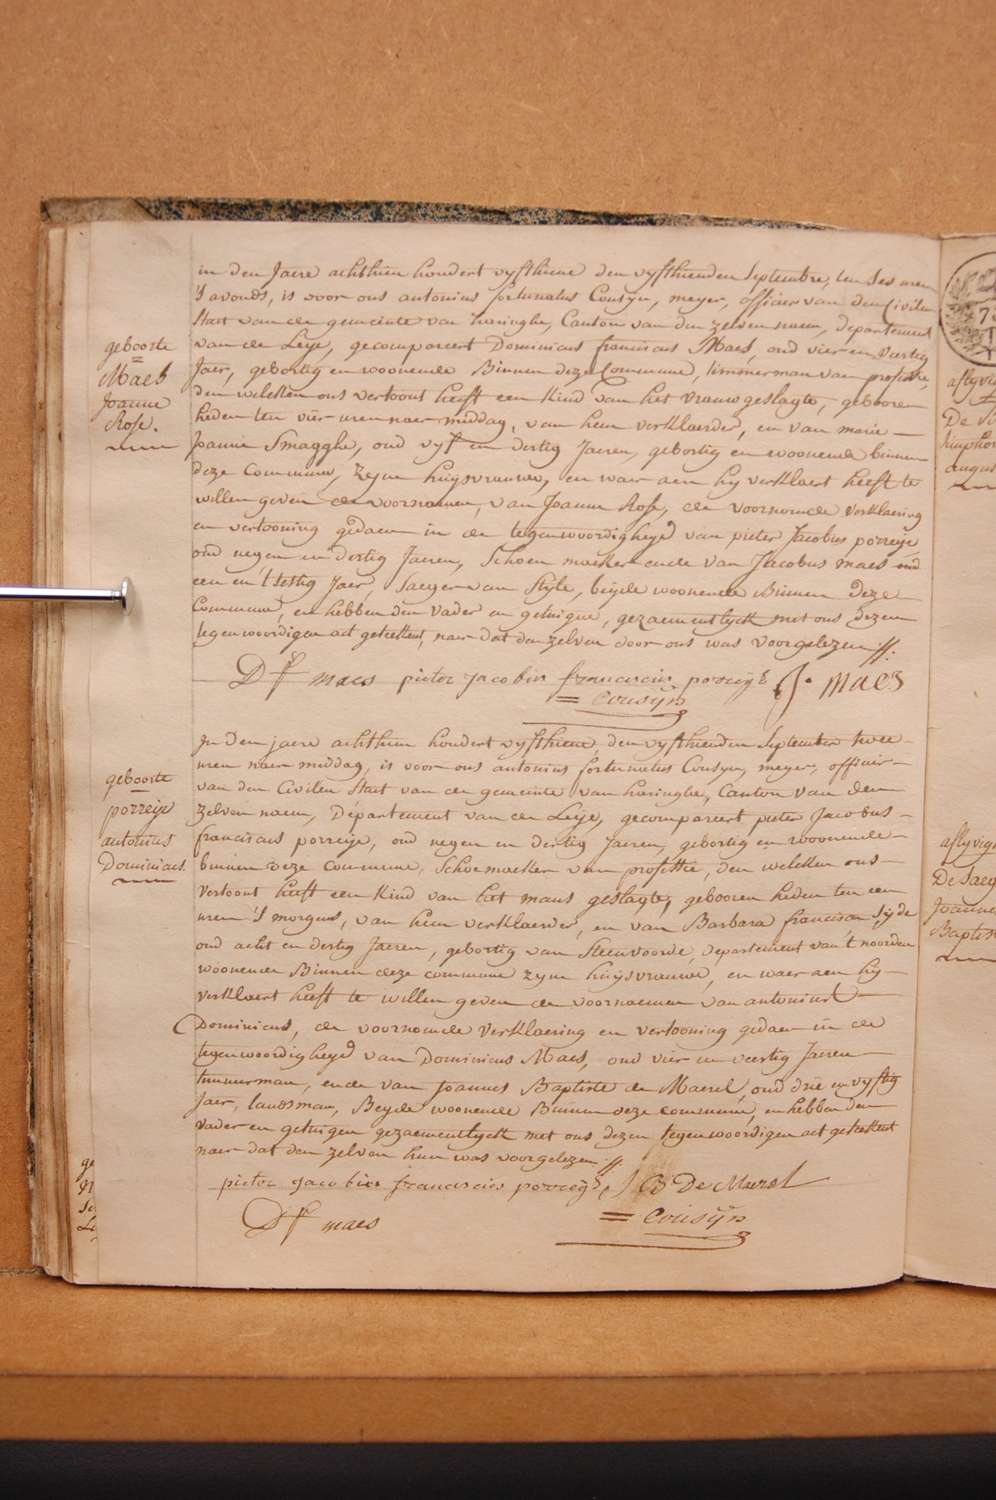 geboorte
=
Maes
Joanne
Rose.
in den Jaere achthien hondert vyfthiene den vyfthienden Septembre, ten ses uren
's avonds, is voor ons antonius fortunatus Cousyn, meyer, officier van den Civilen
Staet van de gemeinte van haringhe, Canton van den zelven naem, departement
van de Leije, gecompareert Dominicus franciscus Maes, oud vier en veertig
Jaer, gebortig en woonende Binnen deze Commune, timmerman van professie,
den welken ons vertoont heeft een kind van het vrouwgeslagte, gebooren
heden ten vier uren naer middag, van hem verklaerder, en van marie
joanne Smagghe, oud vyf en dertig Jaeren, gebortig en woonende binnen
deze Commune, zyne huysvrouwe, en waer aen hy verklaert heeft te
willen geven de voornamen, van Joanne Rose, de voornoemde verklaering
en vertooning gedaen in de tegenwoordigheyd van pieter Jacobus porreije
oud negen en dertig Jaeren, Schoen maeker ende van Jacobus maes oud
een en 't sestig Jaer, Saeger van Style, beijde woonende Binnen deze
Commune, en hebben den Vader en getuigen, gezaementlyck met ons dezen
tegenwoordigen act geteekent, naer dat den zelven door ons was voorgelezen //:
Df maes pieter jacobus franciscus porreije J. maes
= Cousijn
geboorte
porreije
antonius
Dominicus.
In den jaere achthien hondert vyfthiene, den vyfthienden September twee
uren naer middag, is voor ons antonius fortunatus Cousyn, meyer, officier
van den Civilen Staet van de gemeinte van haringhe, Canton van den
zelven naem, Département van de Leije, gecompareert pieter Jacobus
franciscus porreije, oud negen en dertig Jaeren, gebortig en woonende
binnen deze commune, Schoemaeker van professie, den welken ons
vertoont heeft een kind van het mans geslagte, gebooren heden ten een
uren 's morgens, van hem verklaerder, en van Barbara francisca
oud acht en dertig Jaeren, gebortig van Steenvoorde, departement van 't noorden
woonende Binnen deze commune zyne huijsvrouwe, en waer aen hy
verklaert heeft te willen geven de voornaemen van antonius
Dominicus, de voornoemde verklaering en vertooning gedaen in de
tegenwoordigheyd van Dominicus Maes, oud vier en veertig Jaeren
timmerman, ende van joannes Baptiste de Maerel, oud drie en vyftig
Jaer, landsman, Beyde woonende Binnen deze commune, en hebben den
Vader en getuigen gezaementlyck met ons dezen tegenwoordigen act geteekent
naer dat den zelven hun was voorgelezen //.
pieter jacobus franciscus porreije J B De Maerel
Df maes
= Cousijn
De
augus
De Saeg
Joanne
Baptis